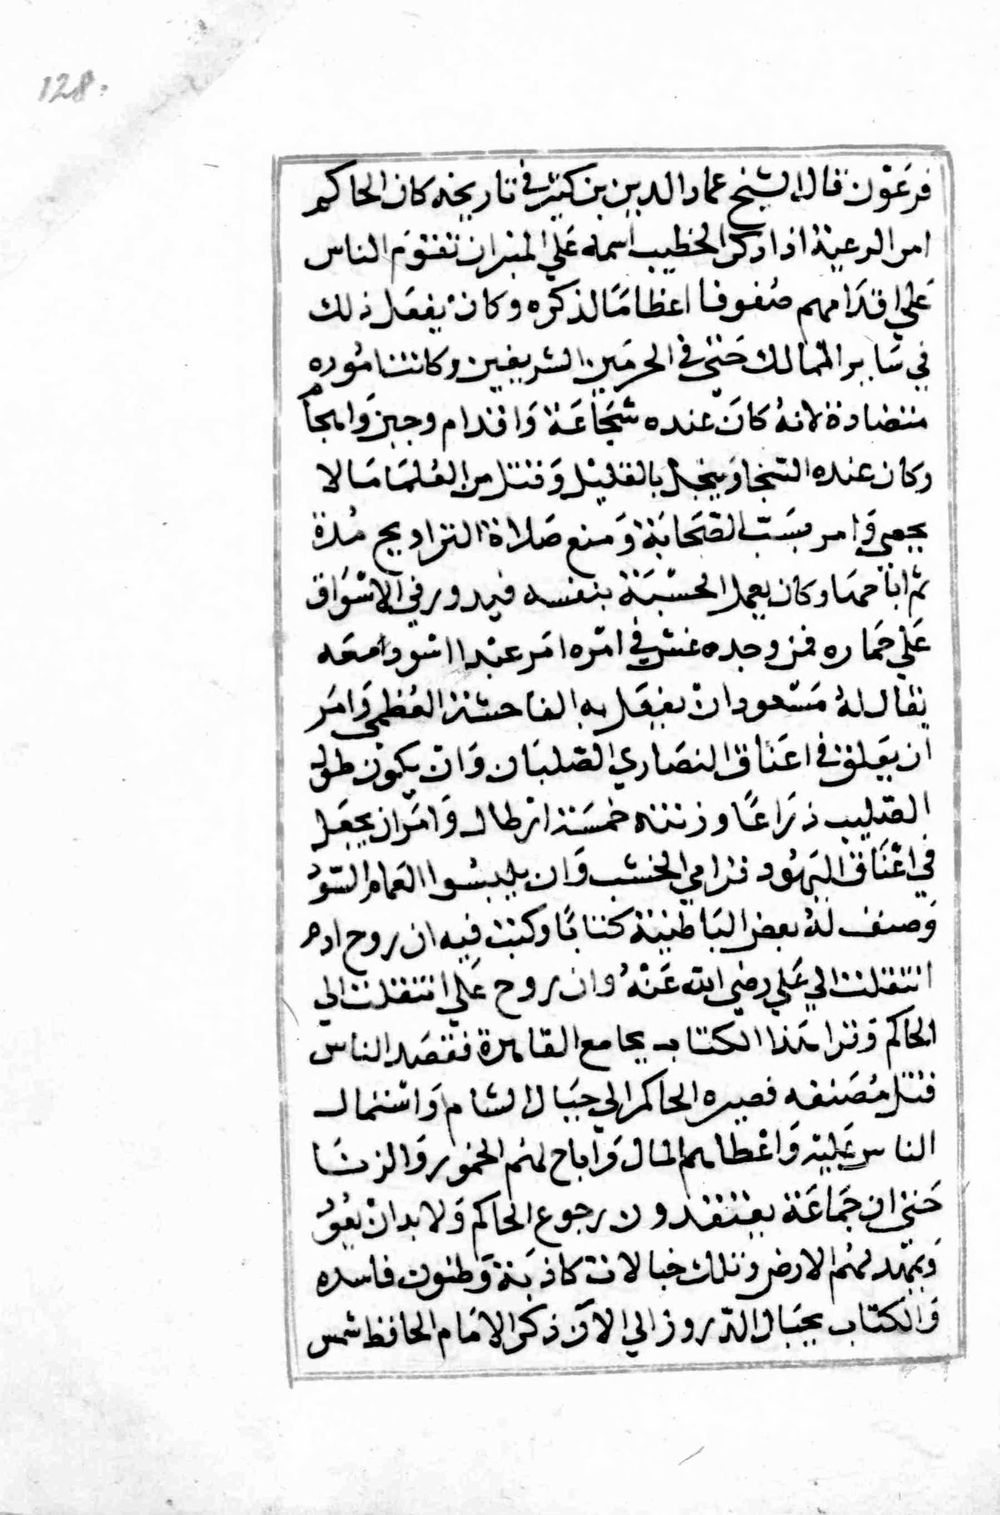 128.
فرعَوْن قال الشيخ عماد الدين بن كثير في تاريخه كان الحاكم
امر الرعية اذا ذكر الخطيب اسمه عَلي المنبر ان تقوَم الناس
عَلي اقدَامهم صُفوفا اعظامًا لذكره وكانْ يفعَل ذلك
في سَاير الممالك حَتى في الحرمَين الشريفين وكانت امُوره
متضادة لانهُ كانَ عنده شجَاعَة وَاقدام وجبن وَاحجام
وكان عنده السّخا ويبخل بالقليْل وَقتل من العُلمَا مَا لا
يحصي وَامر بسَبّ الصّحَابَة وَمنع صَلاة التراويح مُدة
ثم ابَاحهَا وكان يعمل الحسْبَة بنفسه فيدور في الاسْوَاق
عَلي حمَاره فمن وجده غش في امْره امَر عبْدا اسْود امعَه
يقال لهُ مَسْعود انْ يفعَل به الفاحشة العُظمي وَامَر
ان يعَلق في اعنَاق النصَاري الصّلبَان وَانْ يكون طول
الصّليب ذرَاعًا وزنته خمسَة ارْطال وَامَر ان يجعَل
في اعْنَاق اليهُود قرامي الخشب وَان يلبسُوا العَمام السّوُد
وَصنف لهُ بعض البَاطنية كتابًا وكتب فِيه ان روح ادم
انتقلت الي عَلي رضي الله عَنْهُ وان روح عَلي انتقلت الي
الحاكم وَقرا هَذا الكتاب بجامع القاهرة فقصَد الناس
قتْل مُصَنفه فصيره الحاكم الي جبَال الشام وَاسْتمال
الناس عَليْه وَاعْطاهم المال وَاباح لهُم الخمور وَالزنَا
حَتى ان جَمَاعَة يعْتقدون رجوع الحاكم وَلابد انْ يعُوُد
وَيمَهّد لهُم الارض وتلك خيالات كاذبَة وَظنون فاسده
وَالكتاب بجبَال الدّروز الي الآن ذكر الامَام الحافظ شمس